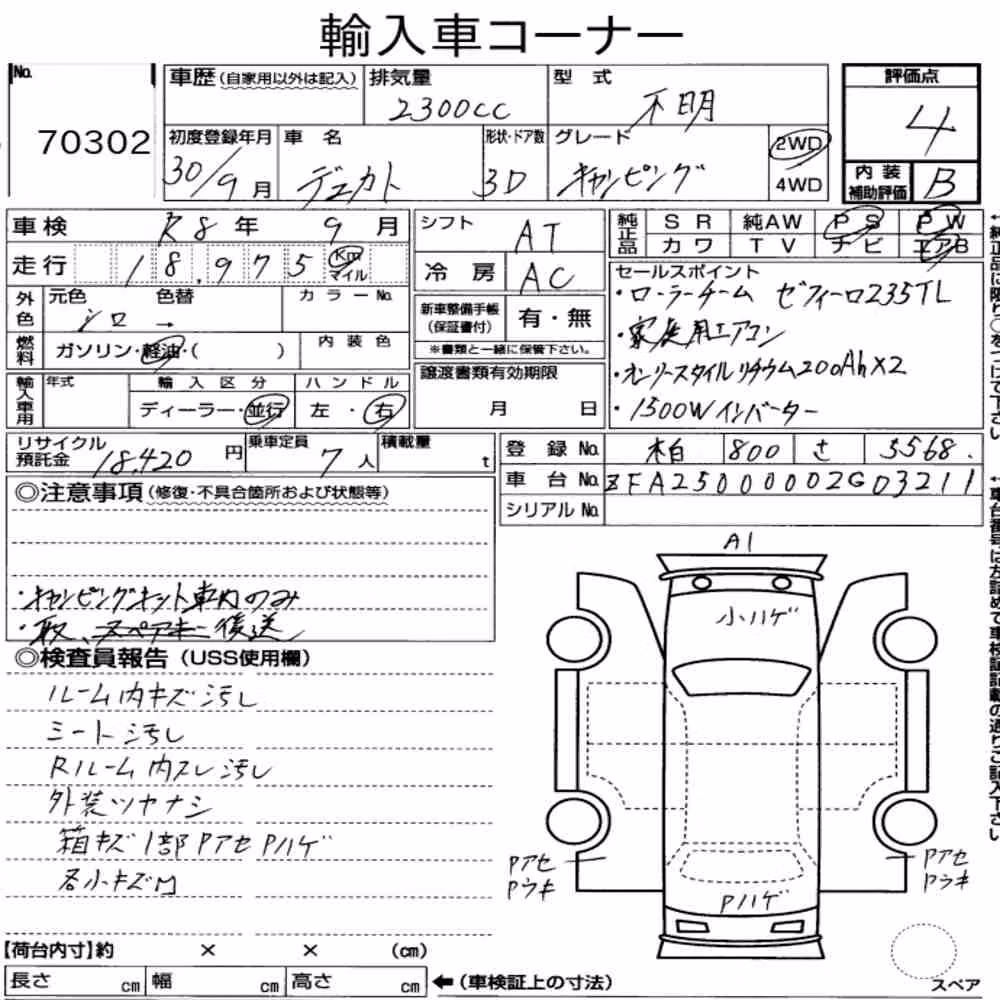 輸入車コーナー
No. 70302
車歴(自家用以外は記入)
排気量 2300cc
型式 不明
評価点 4
初度登録年月 30/9月
車名 デュカト
形状・ドア数 3D
グレード キャンピング
2WD
4WD
内装補助評価 B
車検 R8年 9月
シフト AT
純正品 SR 純AW PS PW
カワ TV ナビ エアB
走行 18,975 Km マイル
冷房 AC
セールスポイント
・ローラーチーム ゼフィーロ235TL
・家庭用エアコン
・オンリースタイルリチウム200Ah×2
・1500Wインバーター
外色 元色 色替 カラーNo.
シロ →
新車整備手帳(保証書付) 有・無
※書類と一緒に保管下さい。
燃料 ガソリン・軽油・( ) 内装色
譲渡書類有効期限
月 日
輸入車用 年式 輸入区分 ハンドル
ディーラー・並行 左・右
リサイクル預託金 18,420円
乗車定員 7人
積載量 t
登録No. 柏 800 さ 5568.
車台No. ZFA25000002G03211
シリアルNo.
◎注意事項(修復・不具合箇所および状態等)
・キャンピングキット車内のみ
・取、スペアキー後送
◎検査員報告(USS使用欄)
ルーム内キズ汚し
シート汚し
Rルーム内スレ汚し
外装ツヤナシ
箱キズ1部Pアセ Pハゲ
各小キズM
A1
小ハゲ
Pアセ
Pウキ
Pハゲ
Pアセ
Pウキ
スペア
【荷台内寸】約 × × (cm)
長さ cm 幅 cm 高さ cm ←(車検証上の寸法)